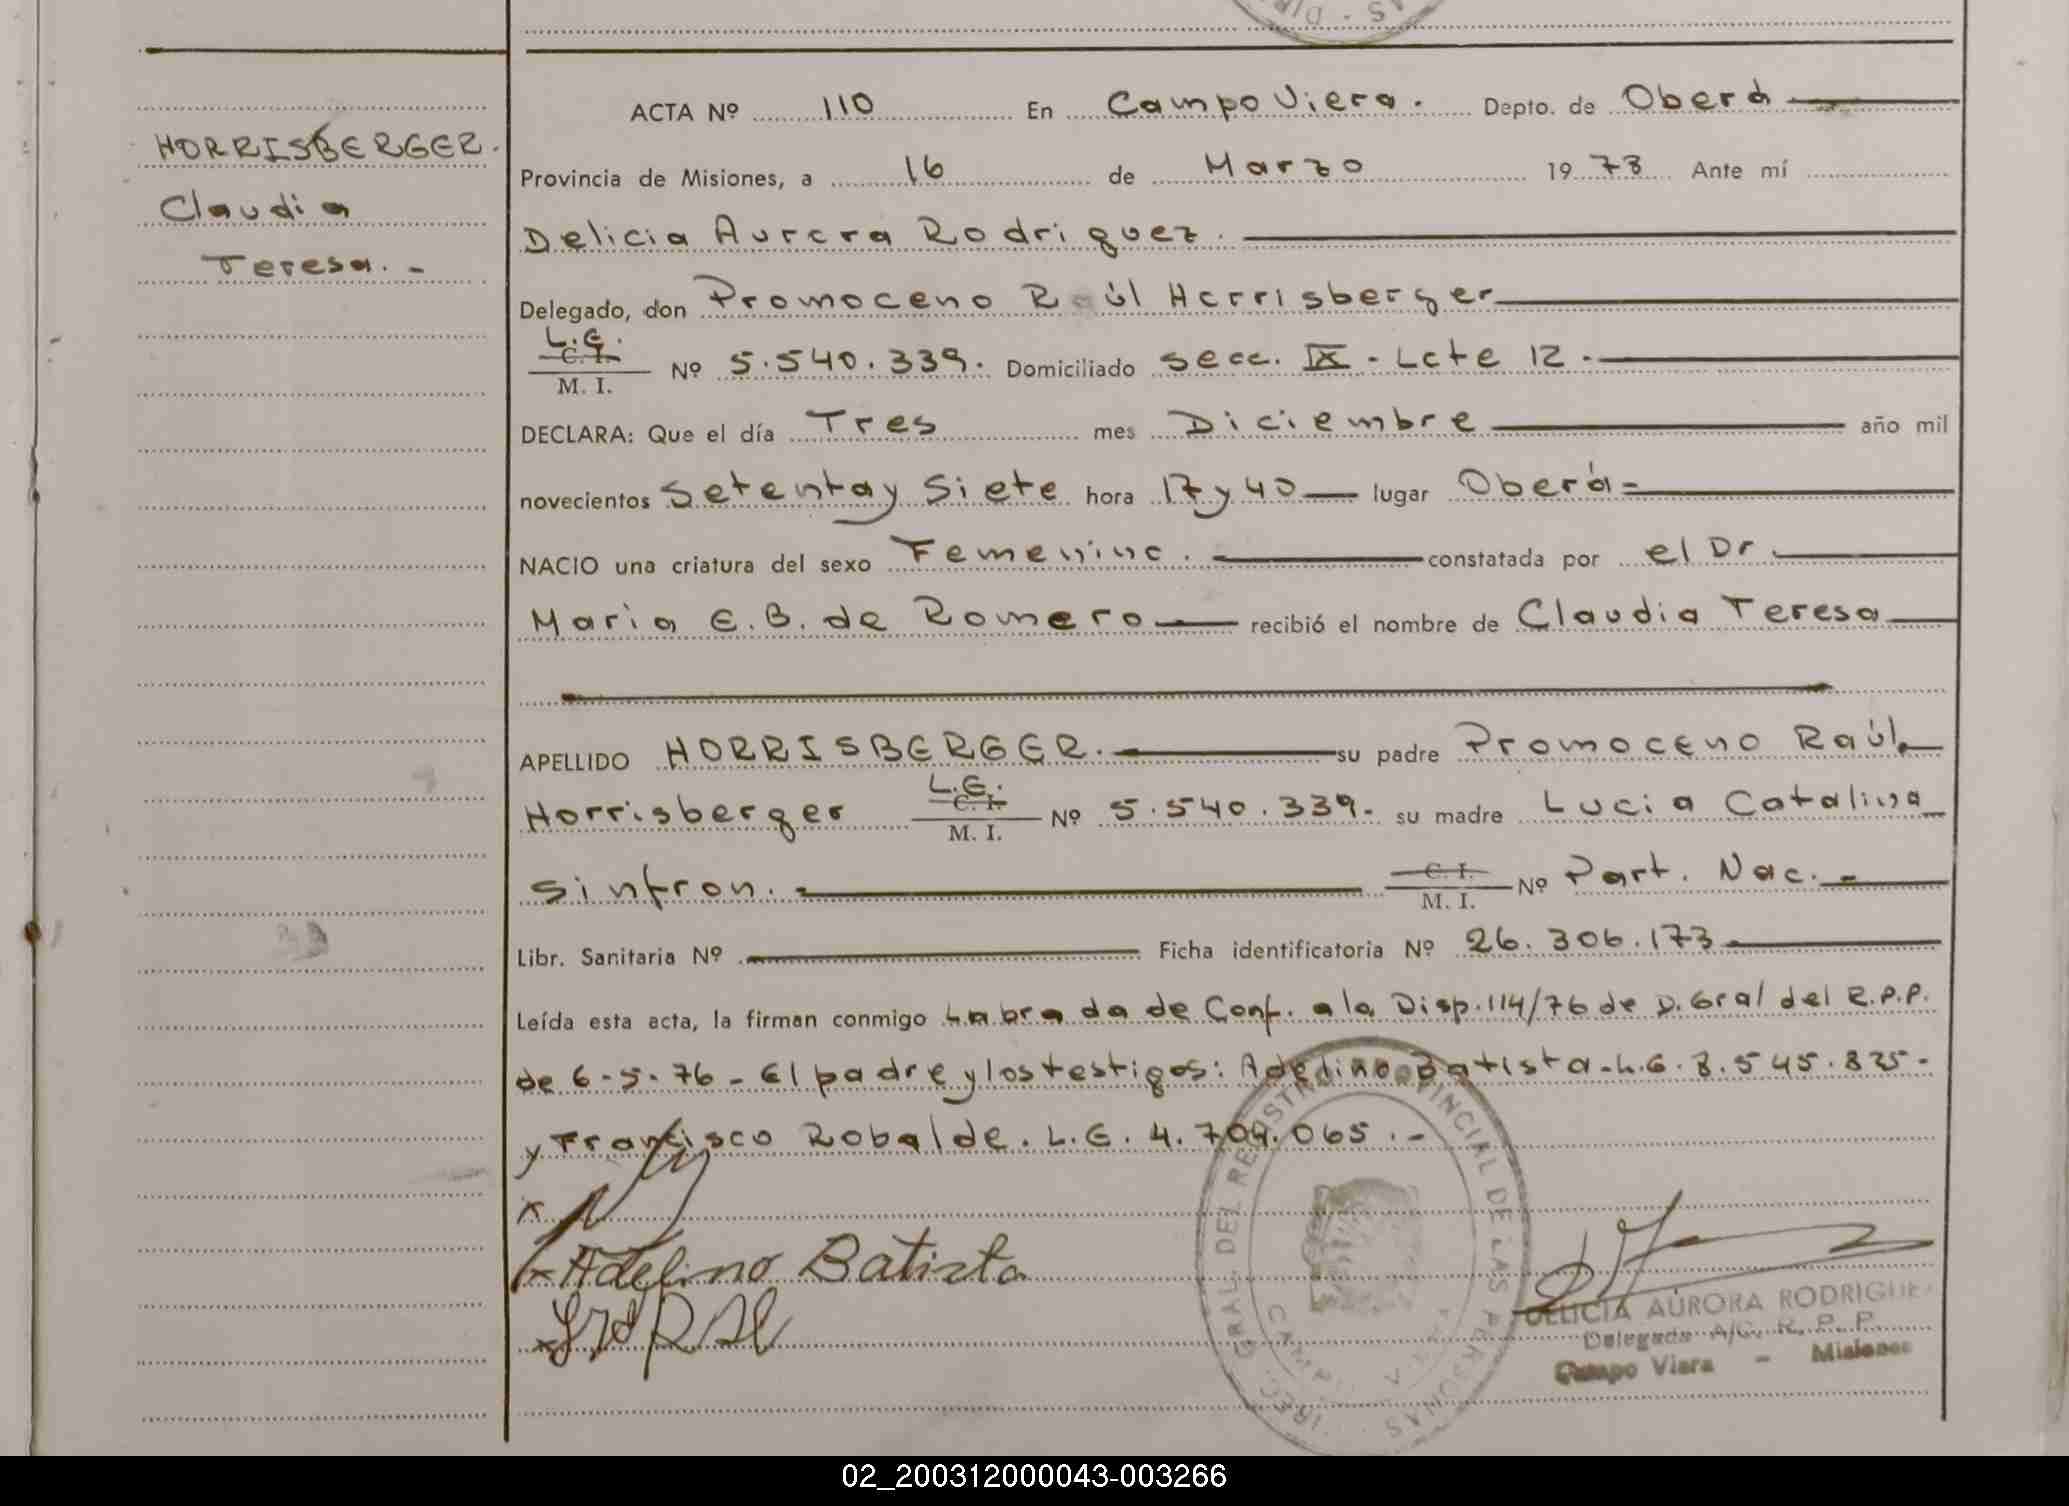 HORRISBERGER.
Claudia
Teresa. -
ACTA Nº 110 En Campo Viera. Depto. de Oberá
Provincia de Misiones, a 16 de Marzo 1978 Ante mí
Delicia Aurora Rodriguez.
Delegado, don Promoceno Raúl Horrisberger
L.E.
C. I.
M. I. Nº 5.540.339. Domiciliado Secc. IX - Lote 12 -
DECLARA: Que el día Tres mes Diciembre año mil
novecientos Setenta y Siete hora 17 y 40 lugar Oberá -
NACIO una criatura del sexo Femenino. constatada por el Dr.
Maria E. B. de Romero recibió el nombre de Claudia Teresa
APELLIDO HORRISBERGER. su padre Promoceno Raúl
Horrisberger L.E. C. I. M. I. Nº 5.540.339. su madre Lucia Catalina
Sintron. C. I. M. I. Nº Part. Nac. -
Libr. Sanitaria Nº Ficha identificatoria Nº 26.306.173
Leída esta acta, la firman conmigo Labrada de Conf. a la Disp. 114/76 de D. Gral del R.P.P.
de 6-5-76 - El padre y los testigos: Adelino Batista - L.E. 8.545.835 -
y Francisco Robalde. L.E. 4.704.065. -
x
x Adelino Batista
x
DIREC. GRAL. DEL REGISTRO PROVINCIAL DE LAS PERSONAS
DELICIA AURORA RODRIGUEZ
Delegada A/C. R. P. P.
Campo Viera - Misiones
02_200312000043-003266